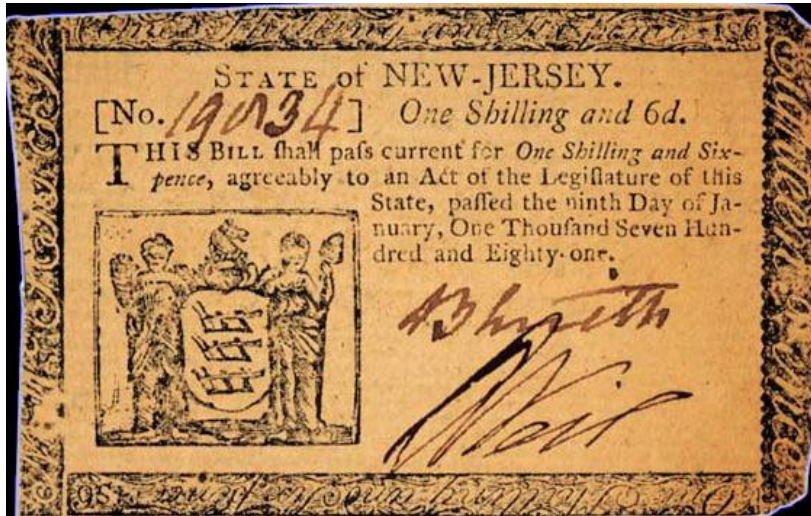 One Shilling and Sixpence. 1s6
STATE of NEW-JERSEY.
[No. 19834] One Shilling and 6d.
THIS BILL ſhall paſs current for One Shilling and Six-
pence, agreeably to an Act of the Legiſlature of this
State, paſſed the ninth Day of Ja-
nuary, One Thouſand Seven Hun-
dred and Eighty-one.
Eighteen Pence